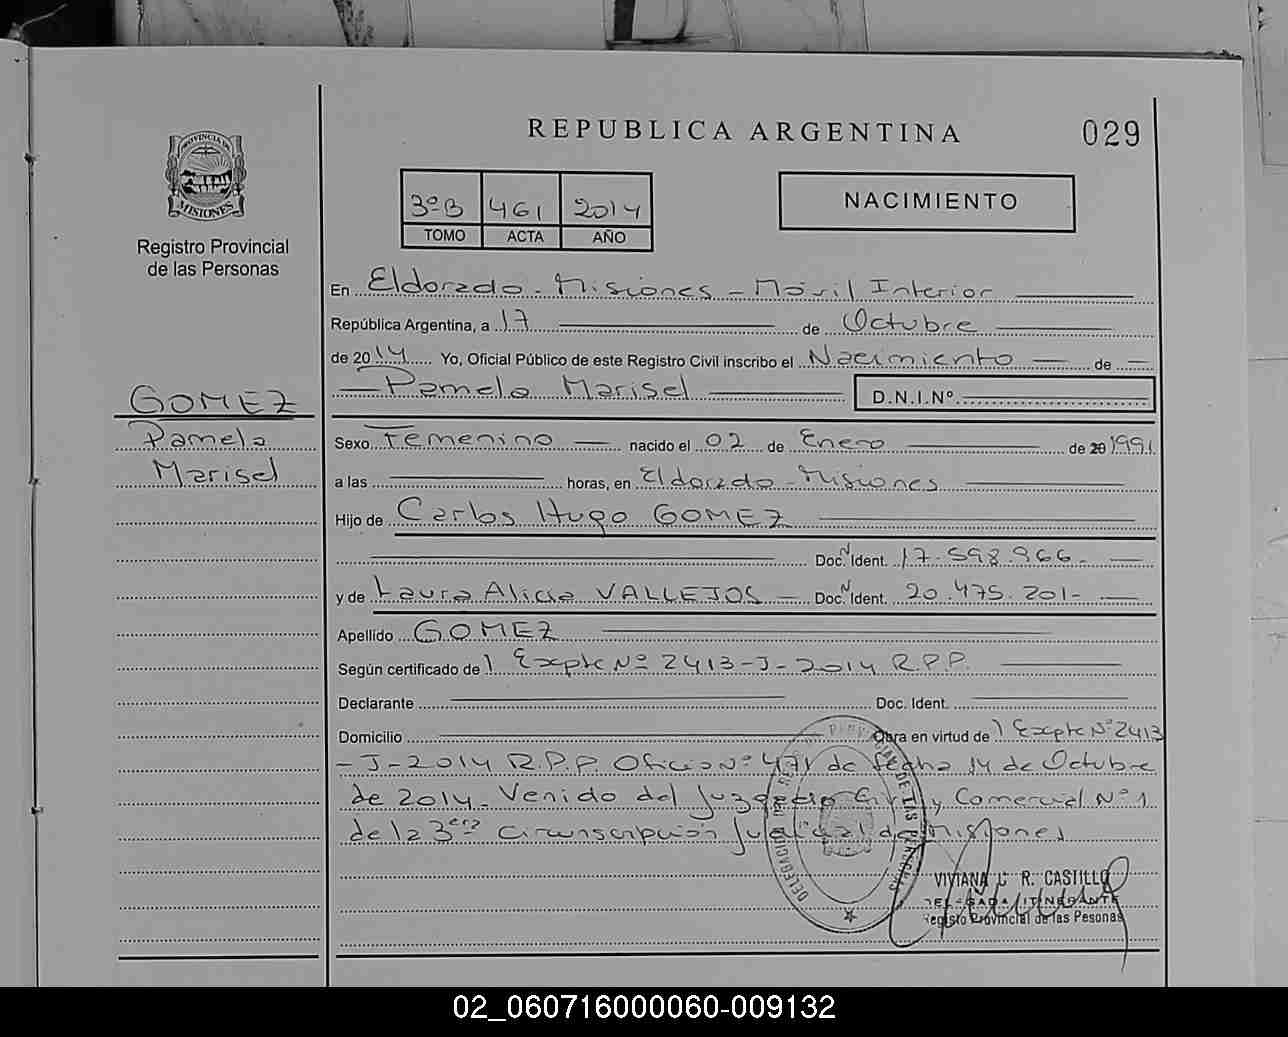 REPUBLICA ARGENTINA
029
PROVINCIA DE
MISIONES
Registro Provincial
de las Personas
3ºB 461 2014
TOMO ACTA AÑO
NACIMIENTO
En Eldorado - Misiones - Móvil Interior
República Argentina, a 17 de Octubre
de 2014 Yo, Oficial Público de este Registro Civil inscribo el Nacimiento de
Pamela Marisel
D.N.I.Nº
GOMEZ
Pamela
Marisel
Sexo Femenino nacido el 02 de Enero de 20 1991
a las horas, en Eldorado - Misiones
Hijo de Carlos Hugo GOMEZ
Doc. N Ident. 17.598.966.-
y de Laura Alicia VALLEJOS - Doc. N Ident. 20.475.201-
Apellido GOMEZ
Según certificado de 1 Expte Nº 2413-J-2014 R.P.P.
Declarante Doc. Ident.
Domicilio Obra en virtud de 1 Expte Nº 2413
-J-2014 R.P.P. Oficio Nº 471 de fecha 14 de Octubre
de 2014. Venido del Juzgado Civil y Comercial Nº 1
de la 3era Circunscripción Judicial de Misiones
DELEGACION DEL REG. PROVINCIAL DE LAS PERSONAS
VIVIANA R. CASTILLO
DELEGADA ITINERANTE
Registo Provincial de las Pesonas
02_060716000060-009132